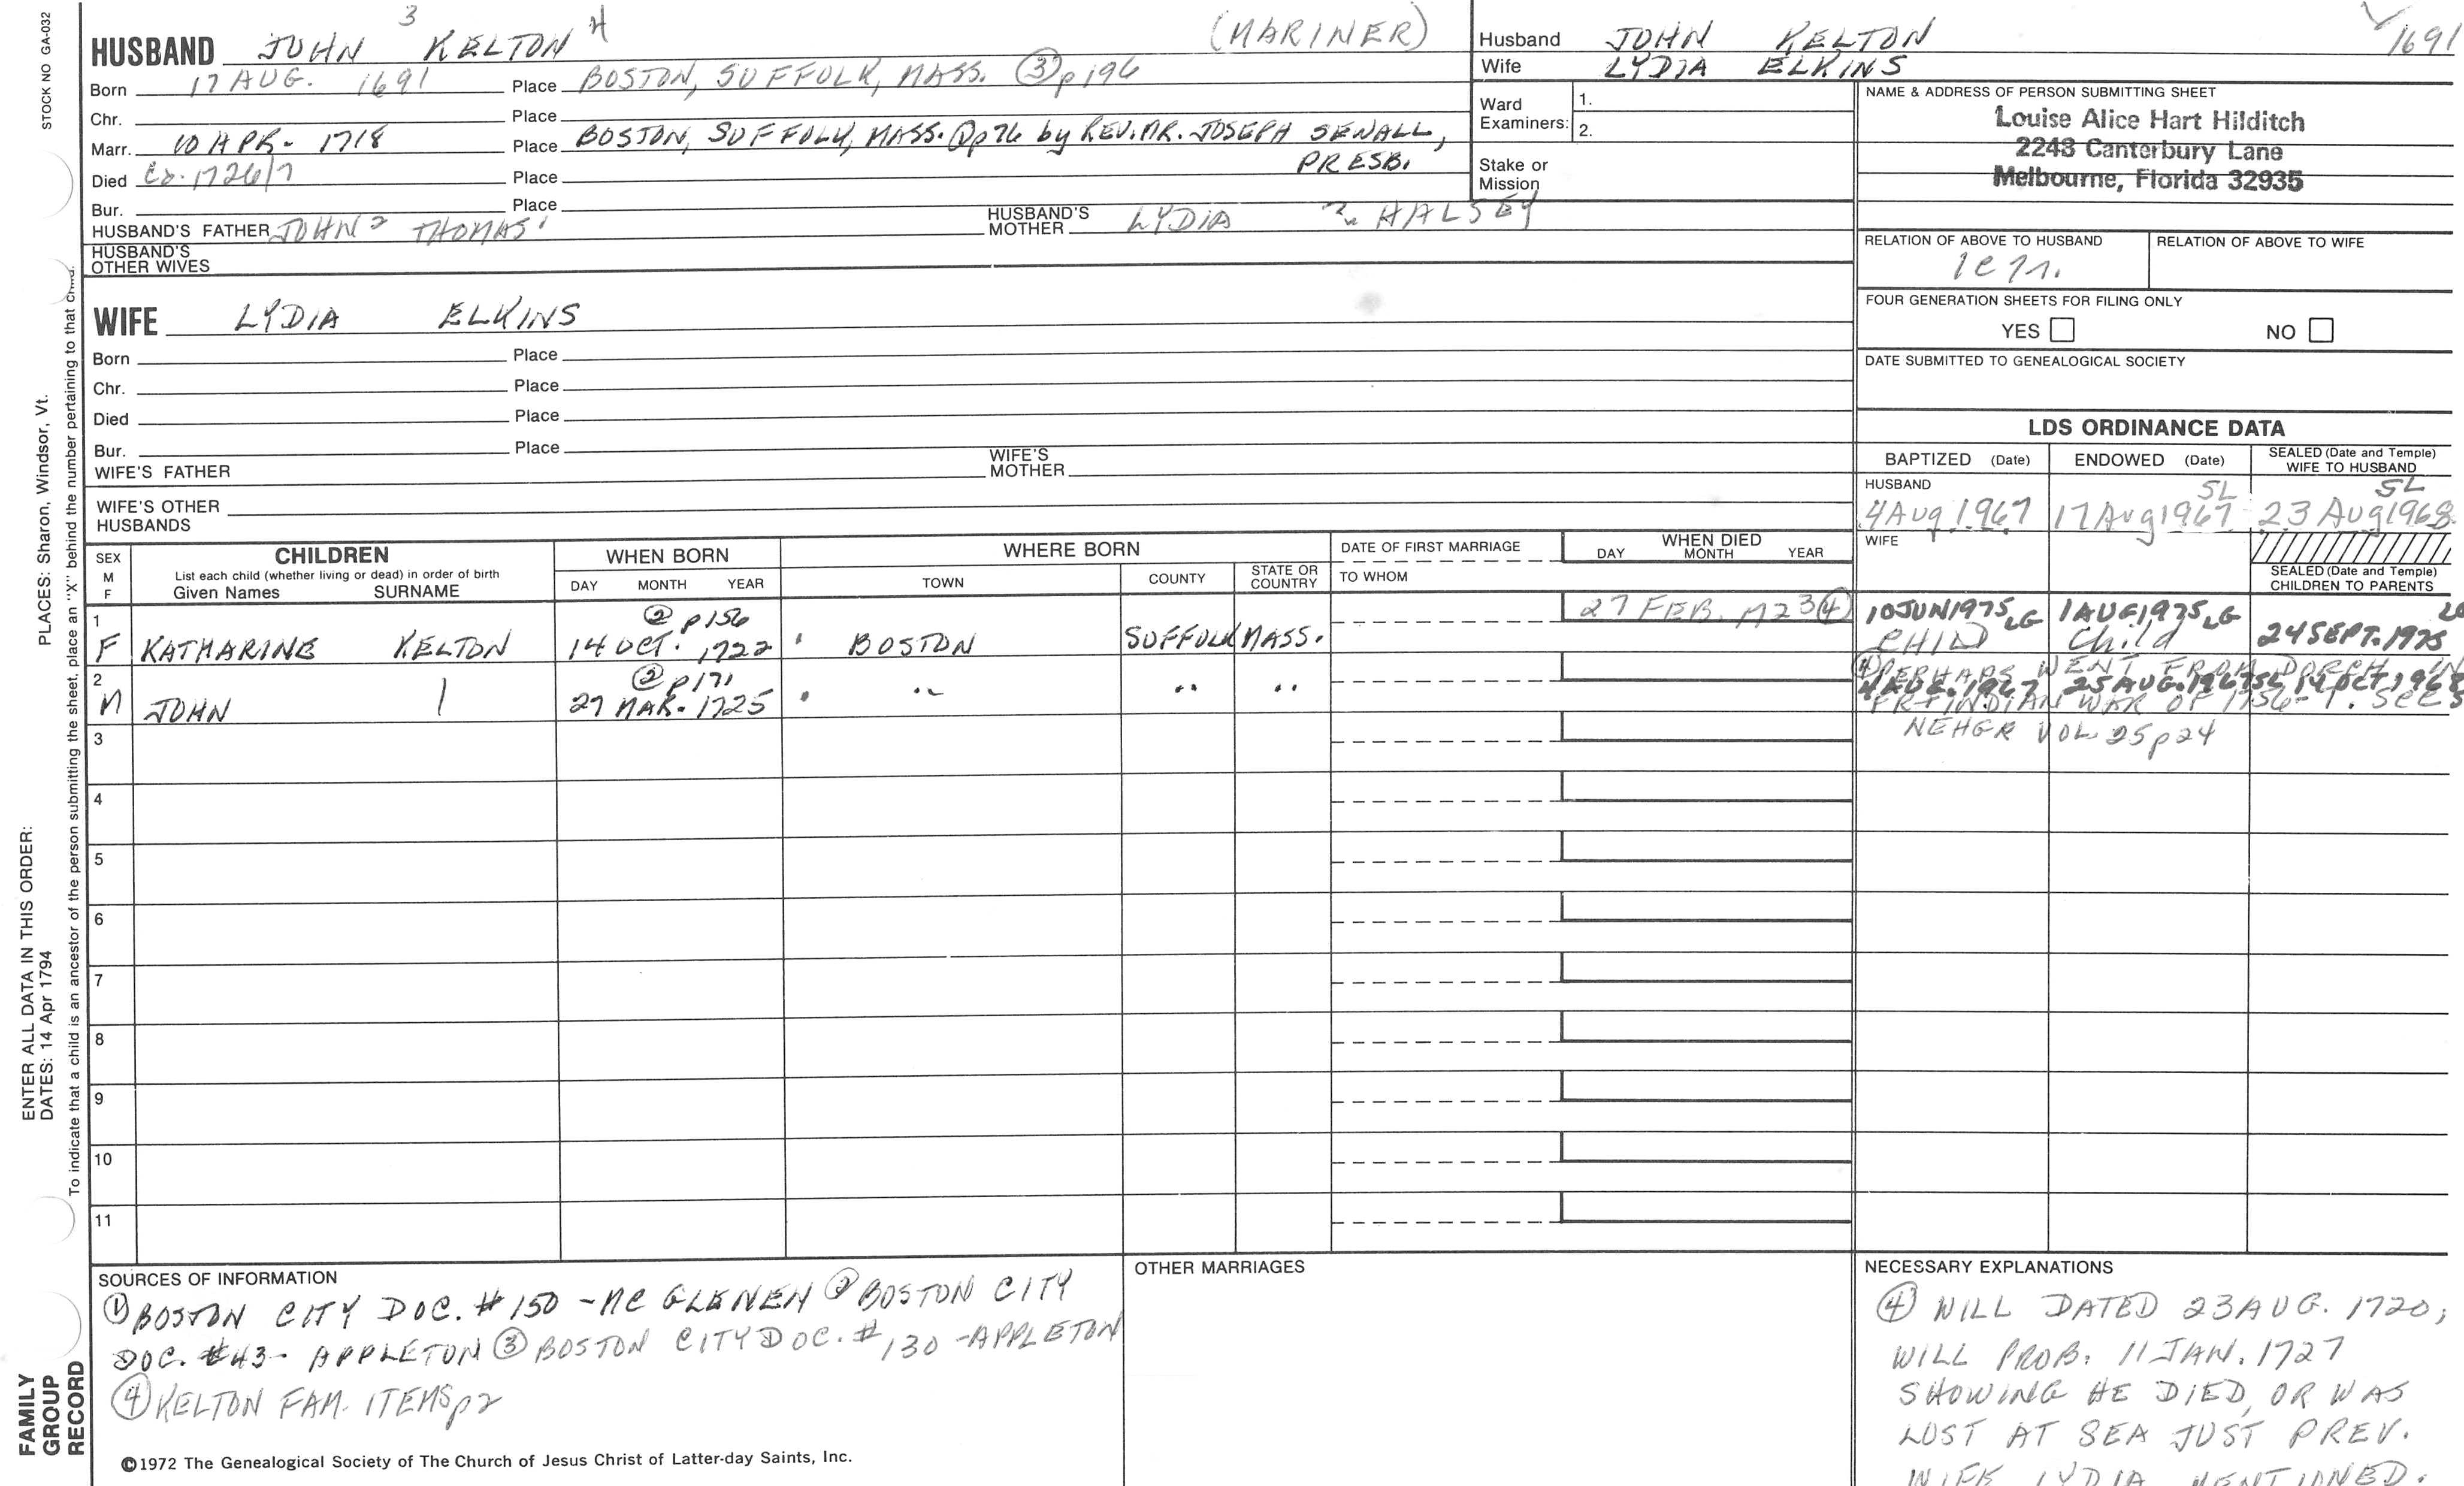 STOCK NO GA-032
PLACES: Sharon, Windsor, Vt.
ENTER ALL DATA IN THIS ORDER:
DATES: 14 Apr 1794
To indicate that a child is an ancestor of the person submitting the sheet, place an "X" behind the number pertaining to that
FAMILY
GROUP
RECORD
HUSBAND JOHN 3 KELTON 4 (MARINER)
Born 17 AUG. 1691 Place BOSTON, SUFFOLK, MASS. ③ p196
Chr. Place
Marr. 10 APR- 1718 Place BOSTON, SUFFOLK, MASS. ① p76 by REV. MR. JOSEPH SEWALL,
PRESB.
Died Ca. 1726/7 Place
Bur. Place
HUSBAND'S FATHER JOHN 2 THOMAS 1 HUSBAND'S MOTHER LYDIA HALSEY
HUSBAND'S
OTHER WIVES
WIFE LYDIA ELKINS
Born Place
Chr. Place
Died Place
Bur. Place
WIFE'S FATHER WIFE'S MOTHER
WIFE'S OTHER
HUSBANDS
Husband JOHN KELTON 1691
Wife LYDIA ELKINS
Ward
Examiners:
1.
2.
Stake or
Mission
NAME & ADDRESS OF PERSON SUBMITTING SHEET
Louise Alice Hart Hilditch
2243 Canterbury Lane
Melbourne, Florida 32935
RELATION OF ABOVE TO HUSBAND RELATION OF ABOVE TO WIFE
FOUR GENERATION SHEETS FOR FILING ONLY
YES NO
DATE SUBMITTED TO GENEALOGICAL SOCIETY
LDS ORDINANCE DATA
BAPTIZED (Date) ENDOWED (Date) SEALED (Date and Temple) WIFE TO HUSBAND
HUSBAND
SL SL
4 Aug 1967 17 Aug 1967 23 Aug 1968
WIFE
SEALED (Date and Temple)
CHILDREN TO PARENTS
SEX M F CHILDREN WHEN BORN WHERE BORN DATE OF FIRST MARRIAGE WHEN DIED
List each child (whether living or dead) in order of birth
Given Names SURNAME DAY MONTH YEAR TOWN COUNTY STATE OR COUNTRY TO WHOM DAY MONTH YEAR
1 ② p156 27 FEB. ④ 10 JUN 1975 LG 1 AUG 1975 LG
F KATHARINE KELTON 14 OCT. 1722 BOSTON SUFFOLK MASS. CHILD Child 24 SEPT. 1975
2 ② p171 ④ PERHAPS WENT FROM DORCH. IN
M JOHN 27 MAR. 1725 " " " 4 AUG. 1967 25 AUG. 1967 SL 14 OCT. 1968
FR + INDIAN WAR OF 1756-7. SEE
3 NEHGR VOL. 25 p 24
4
5
6
7
8
9
10
11
SOURCES OF INFORMATION
① BOSTON CITY DOC. # 150 - MC GLENEN ② BOSTON CITY
DOC. #43- APPLETON ③ BOSTON CITY DOC. # 130 -APPLETON
④ KELTON FAM. ITEMS p2
©1972 The Genealogical Society of The Church of Jesus Christ of Latter-day Saints, Inc.
OTHER MARRIAGES
NECESSARY EXPLANATIONS
④ WILL DATED 23 AUG. 1720;
WILL PROB. 11 JAN. 1727
SHOWING HE DIED, OR WAS
LOST AT SEA JUST PREV.
WIFE LYDIA MENTIONED.